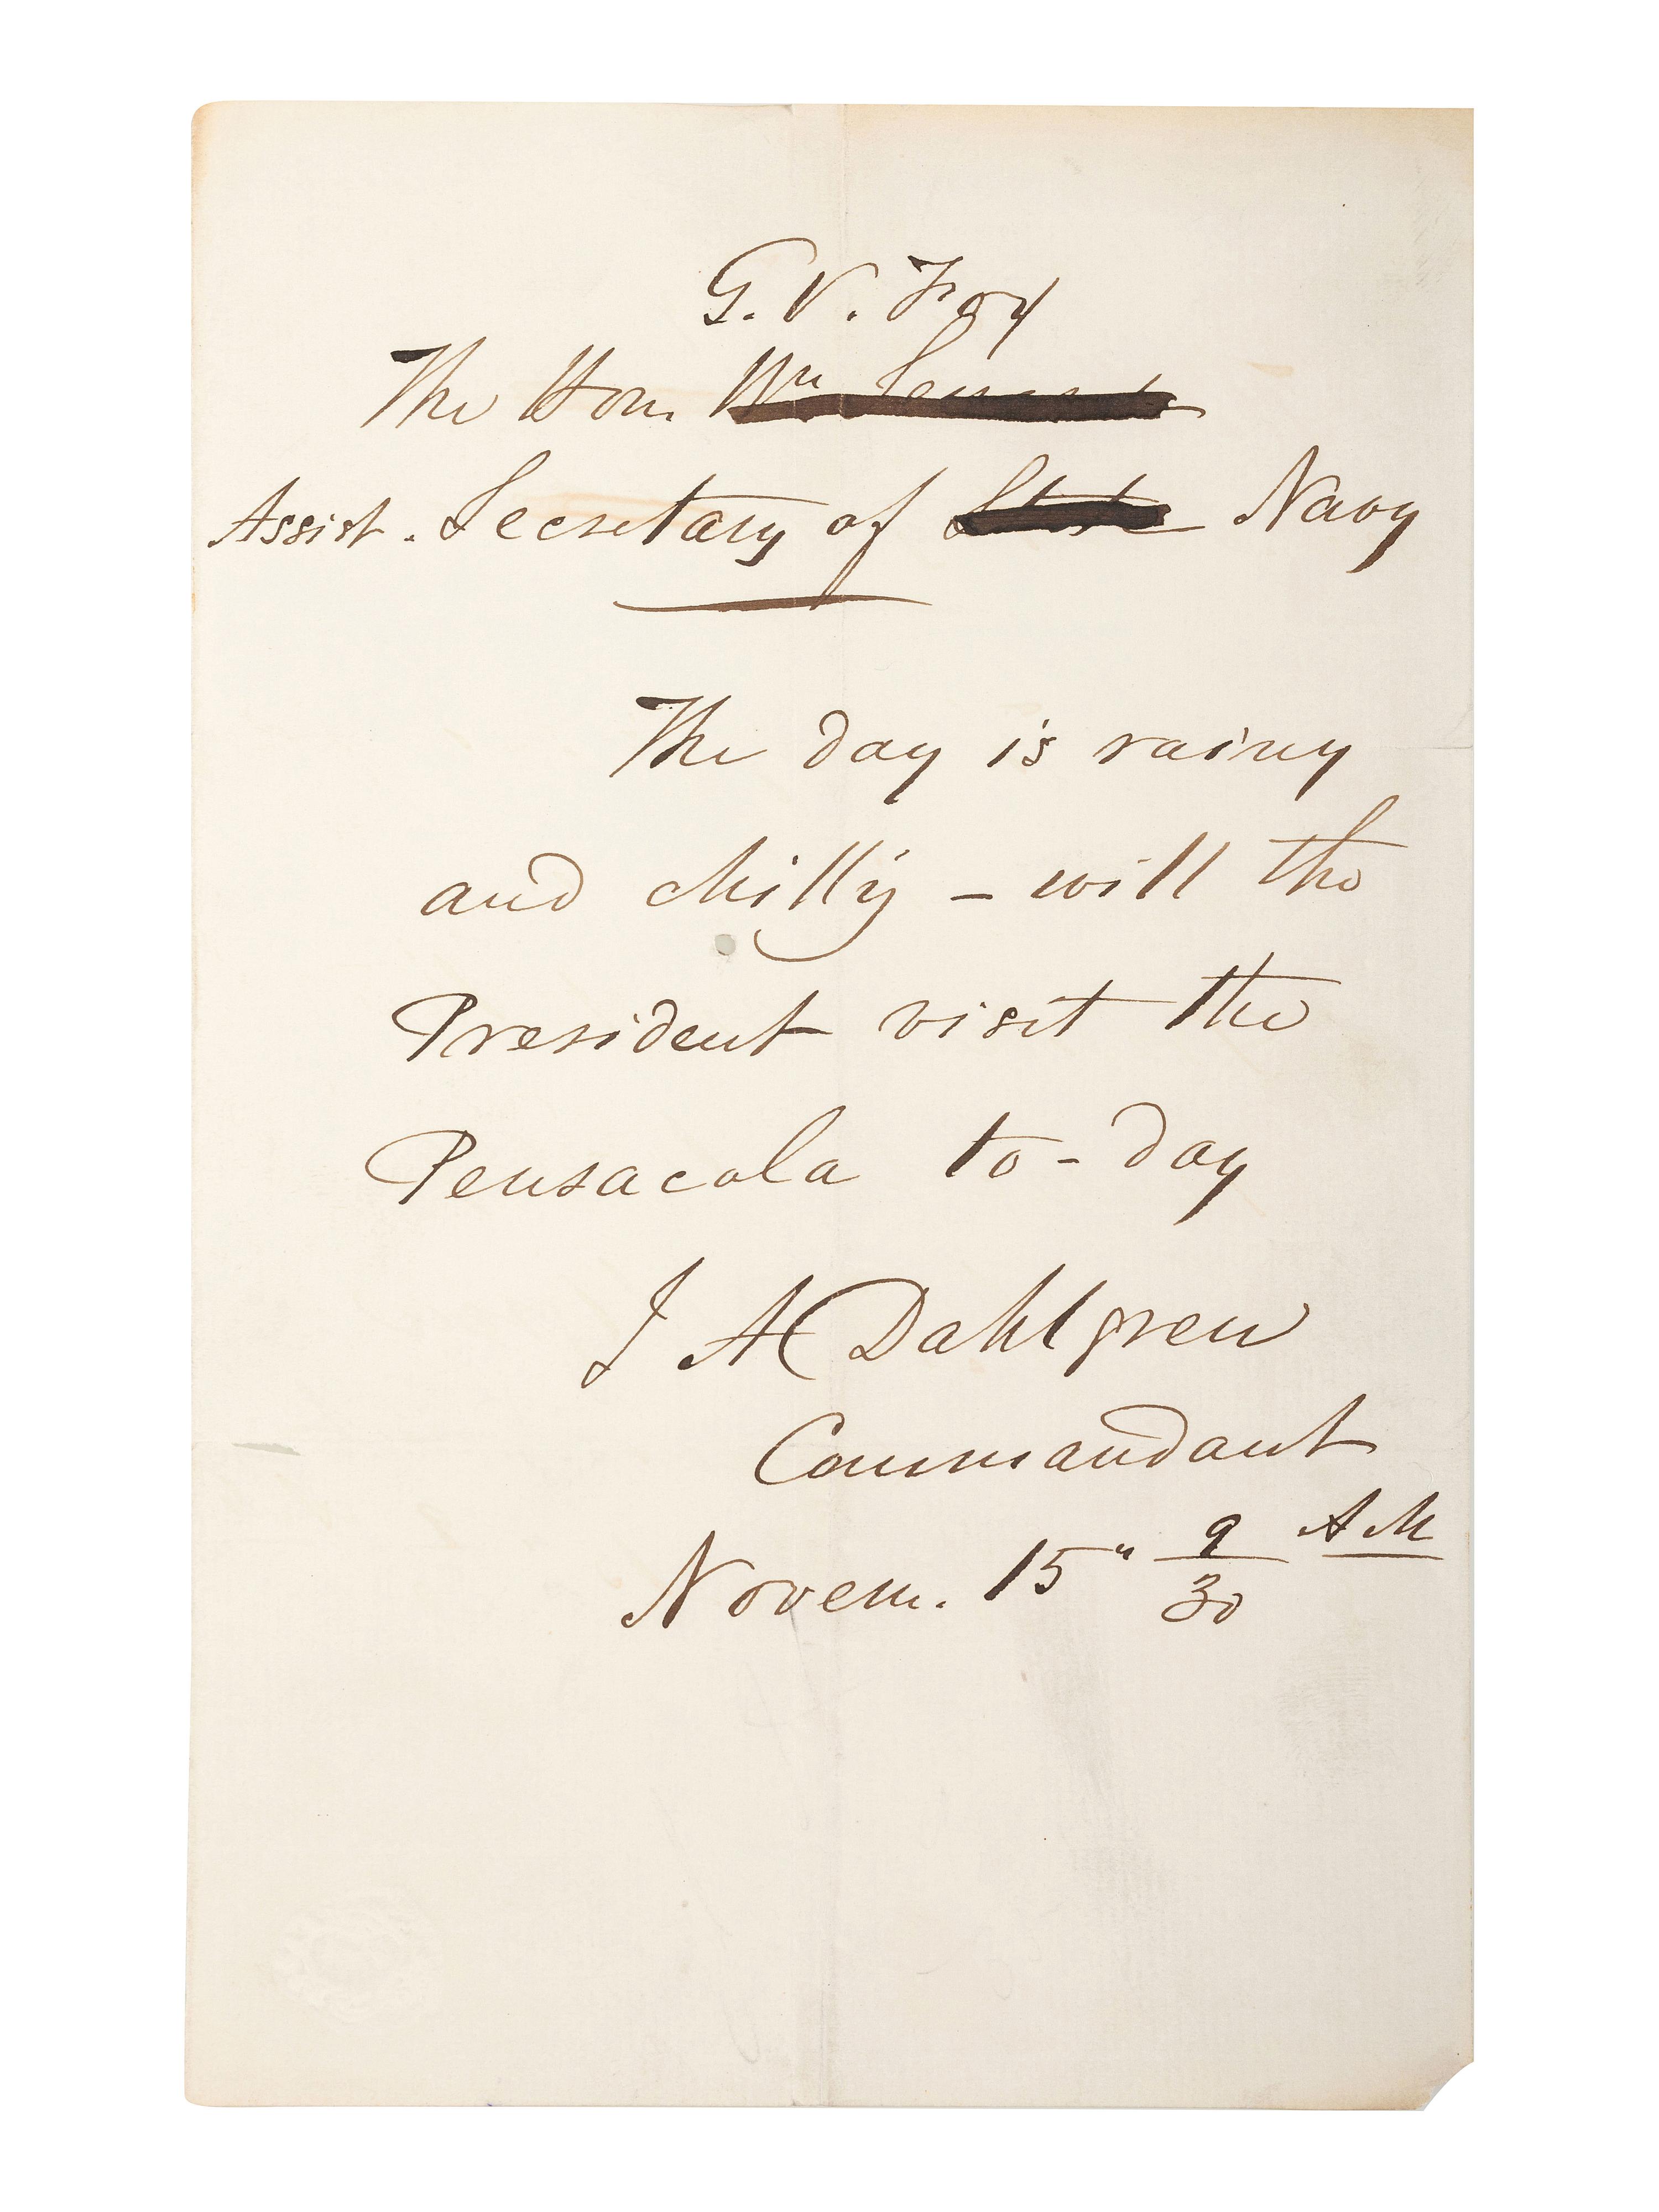 G. V. Fox
The Hon. Wm Seward
Assist. Secretary of State Navy
The day is rainy
and chilly – will the
President visit the
Pensacola to-day
J A Dahlgren
Commandant
Novem. 15" 9/30 AM